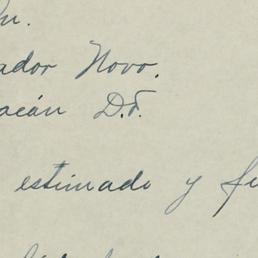 ador Novo.
acán D.F.
estimado y